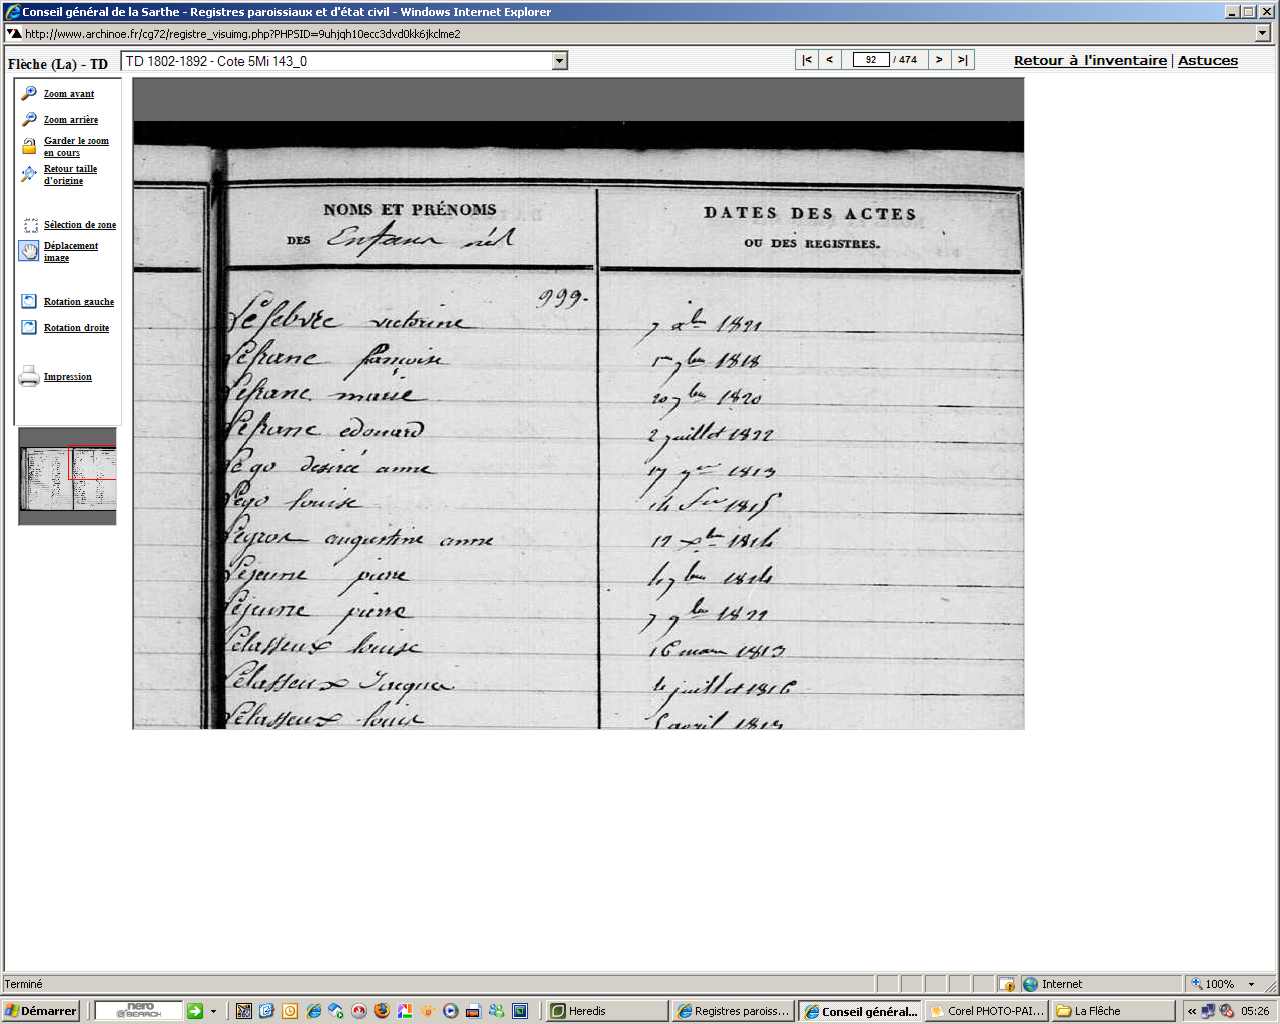 Conseil général de la Sarthe - Registres paroissiaux et d'état civil - Windows Internet Explorer
http://www.archinoe.fr/cg72/registre_visuimg.php?PHPSID=9uhjqh10ecc3dvd0kk6jkclme2
Flèche (La) - TD TD 1802-1892 - Cote 5Mi 143_0 |< < 92 / 474 > >| Retour à l'inventaire | Astuces
Zoom avant
Zoom arrière
Garder le zoom
en cours
Retour taille
d'origine
Sélection de zone
Déplacement
image
Rotation gauche
Rotation droite
Impression
NOMS ET PRÉNOMS DATES DES ACTES
DES Enfans nés OU DES REGISTRES.
999.
Lefebvre victorine 7 xbre 1821
Lefranc françoise 7bre 1818
Lefranc marie 20 7bre 1820
Lefranc edouard 2 juillet 1822
Lego desirée anne 17 1813
Lego louise 14 1815
augustine anne 12 xbre 1814
Lejeune pierre 7bre 1814
Lejeune pierre 7 9bre 1822
Lelasseux louise 16 mars 1813
Lelasseux Jacques 4 juillet 1816
Lelasseux louis avril
Terminé Internet 100%
Démarrer nero SEARCH Heredis Registres paroiss... Conseil général... Corel PHOTO-PAI... La Flêche « 05:26